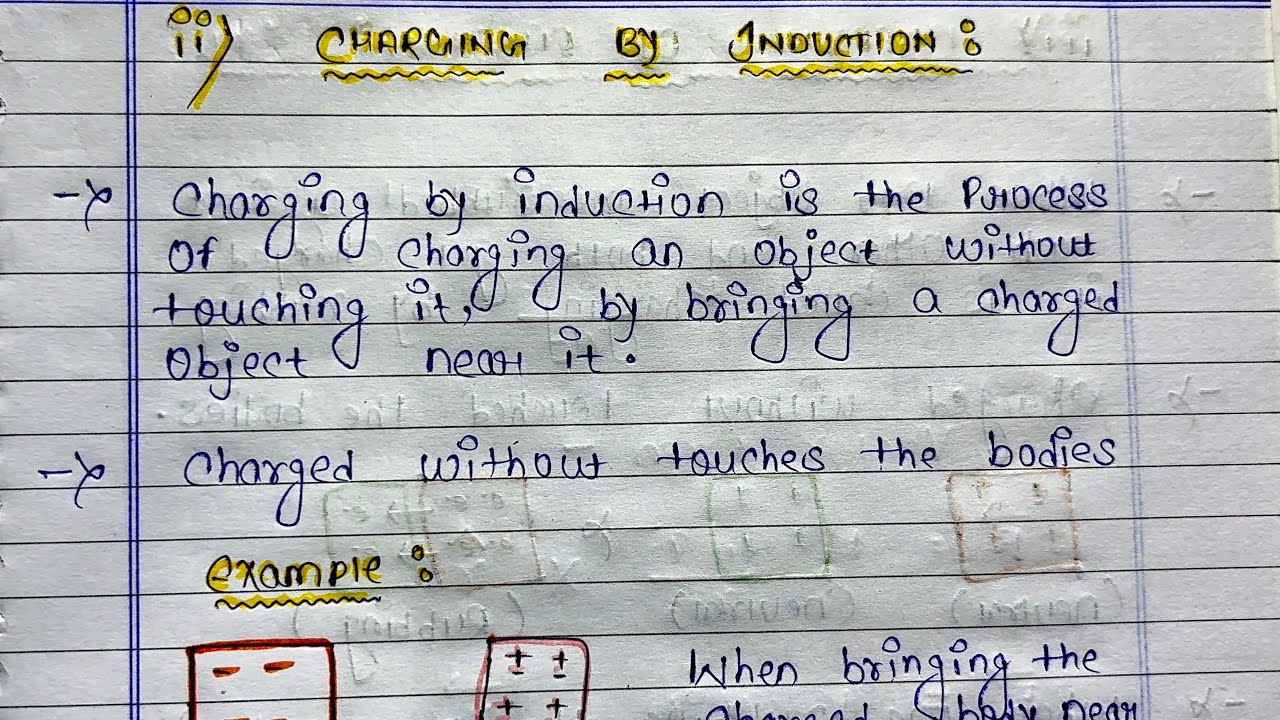 ii) CHARGING BY INDUCTION :
→ Charging by induction is the Process
Of Charging an object without
touching it, by bringing a charged
Object near it.
→ Charged without touches the bodies
Example :
- -
± ±
± ±
When bringing the
charged body near